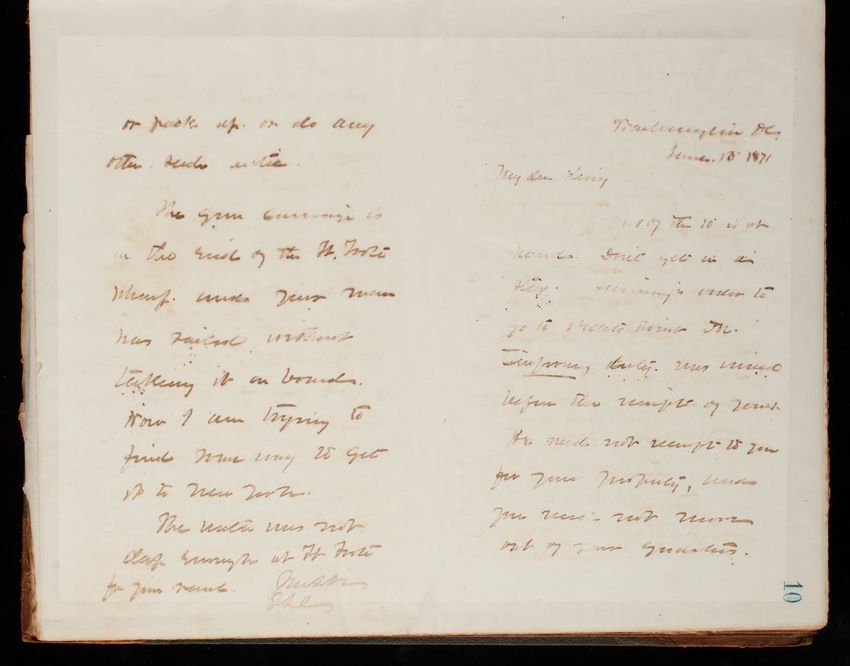 Washington DC
June 13 1871
My dear King
of the 10 is at
hand. Don't get in a
order to
go to Willets Point N.Y.
temporary duty. was issued
before the receipt of yours
He need not receipt to you
for your property, and
you need not move
out of your quarters.
10
or pack up. or do any
other such
The gun carriage is
on the end of the Ft. Foote
Wharf. and your man
has sailed without
taking it on board.
Now I am trying to
find some way to get
it to New York.
The water was not
deep enough at Ft Foote
for your